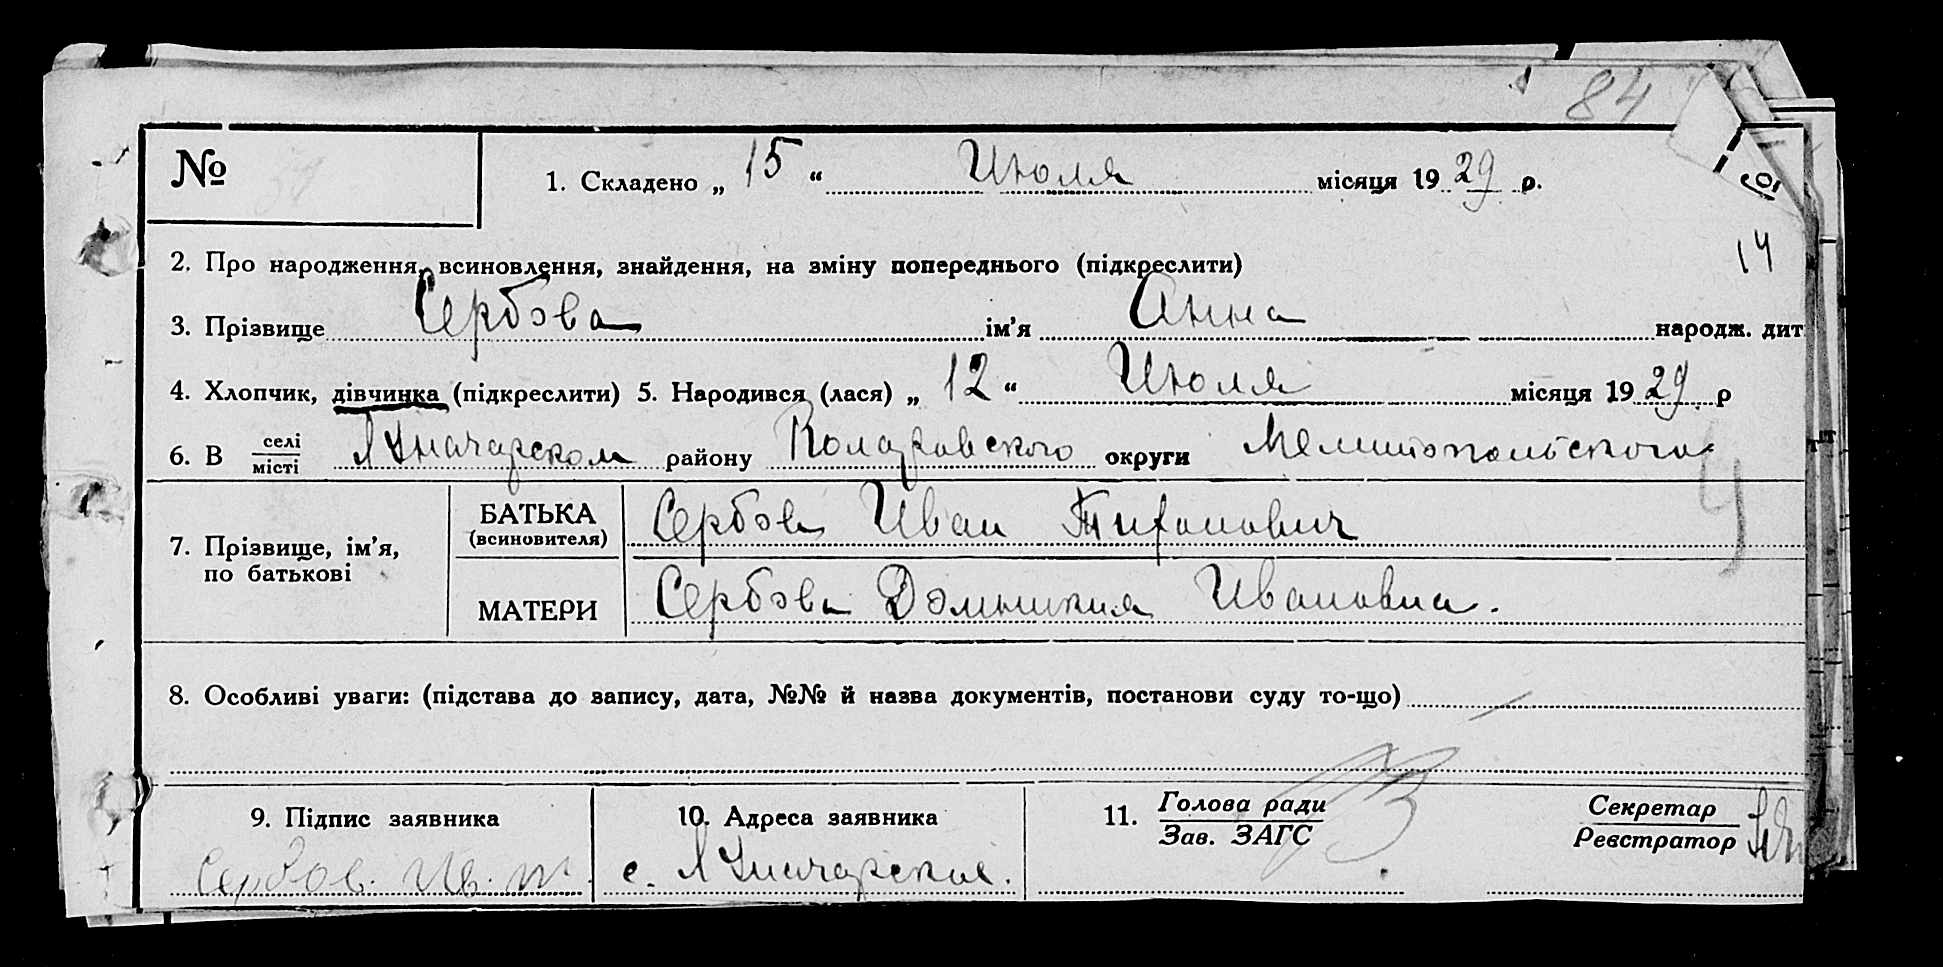 84
№ 1. Складено „ 15 “ Июля місяця 1929 р.
14
2. Про народження, всиновлення, знайдення, на зміну попереднього (підкреслити)
3. Прізвище Сербова ім’я Анна народж. дит
4. Хлопчик, дівчинка (підкреслити) 5. Народився (лася) „ 12 “ Июля місяця 1929 р
6. В селі місті Луначарском району Коларовского округи Мелитопольского
7. Прізвище, ім’я, по батькові
БАТЬКА (всиновителя) Сербов Иван Тифанович
МАТЕРИ Сербова Домникия Ивановна.
8. Особливі уваги: (підстава до запису, дата, №№ й назва документів, постанови суду то-що)
9. Підпис заявника 10. Адреса заявника 11. Голова ради Зав. ЗАГС Секретар Реєстратор
Сербов. Ив. Т. с. Луначарские.